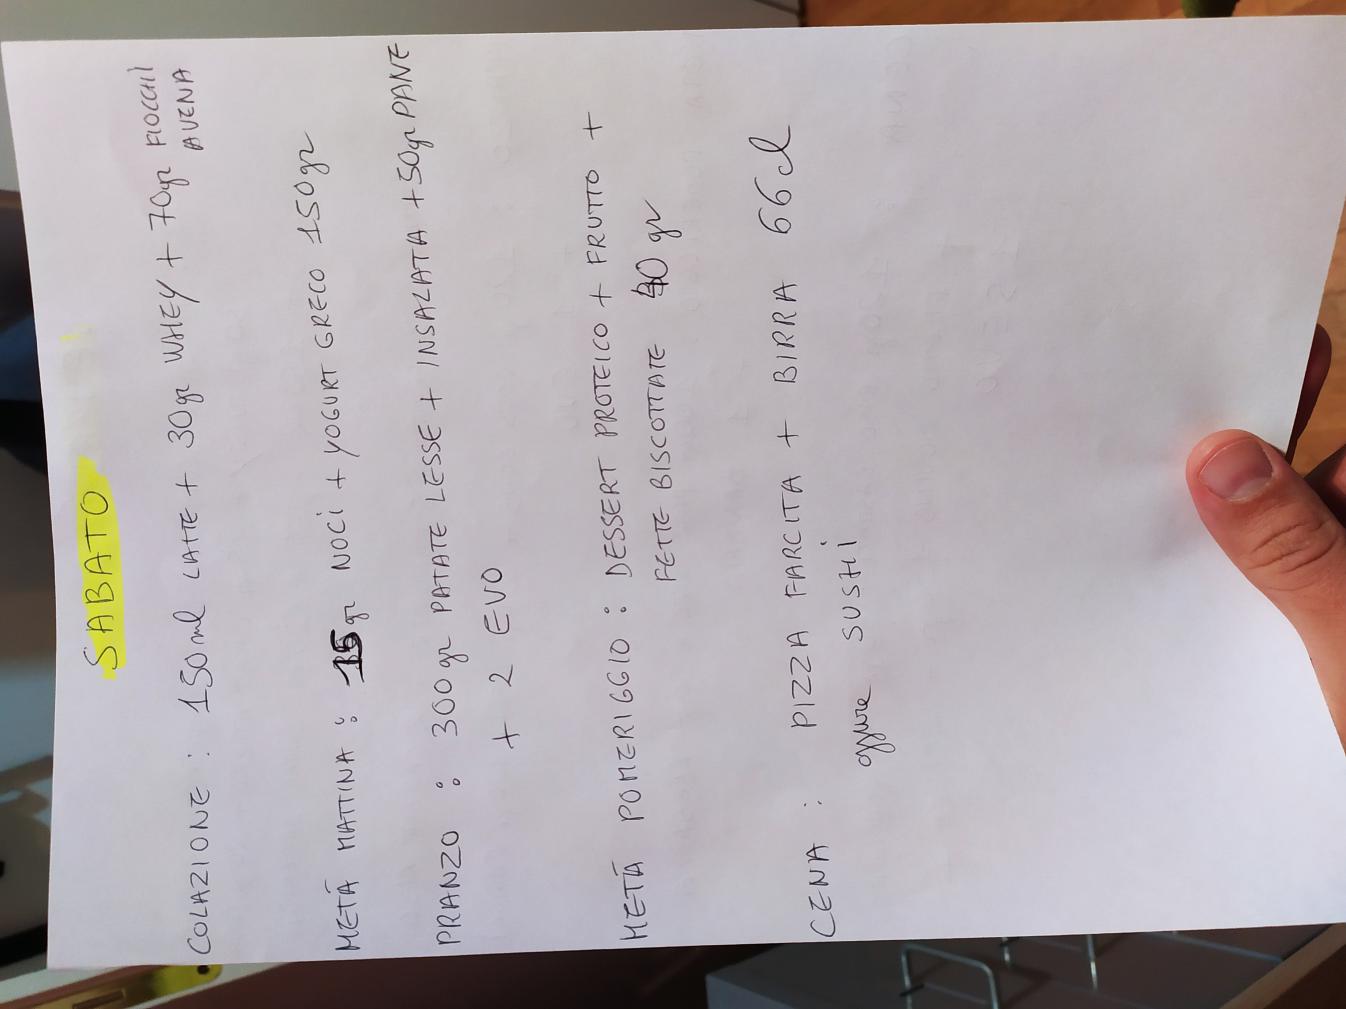 SABATO
COLAZIONE : 150ml LATTE + 30gr WHEY + 70gr FIOCCHI
AVENA
METÀ MATTINA : 15gr NOCI + YOGURT GRECO 150gr
PRANZO : 300gr PATATE LESSE + INSALATA + 50gr PANE
+ 2 EVO
METÀ POMERIGGIO : DESSERT PROTEICO + FRUTTO +
FETTE BISCOTTATE 40 gr
CENA : PIZZA FARCITA + BIRRA 66 cl
oppure SUSHI